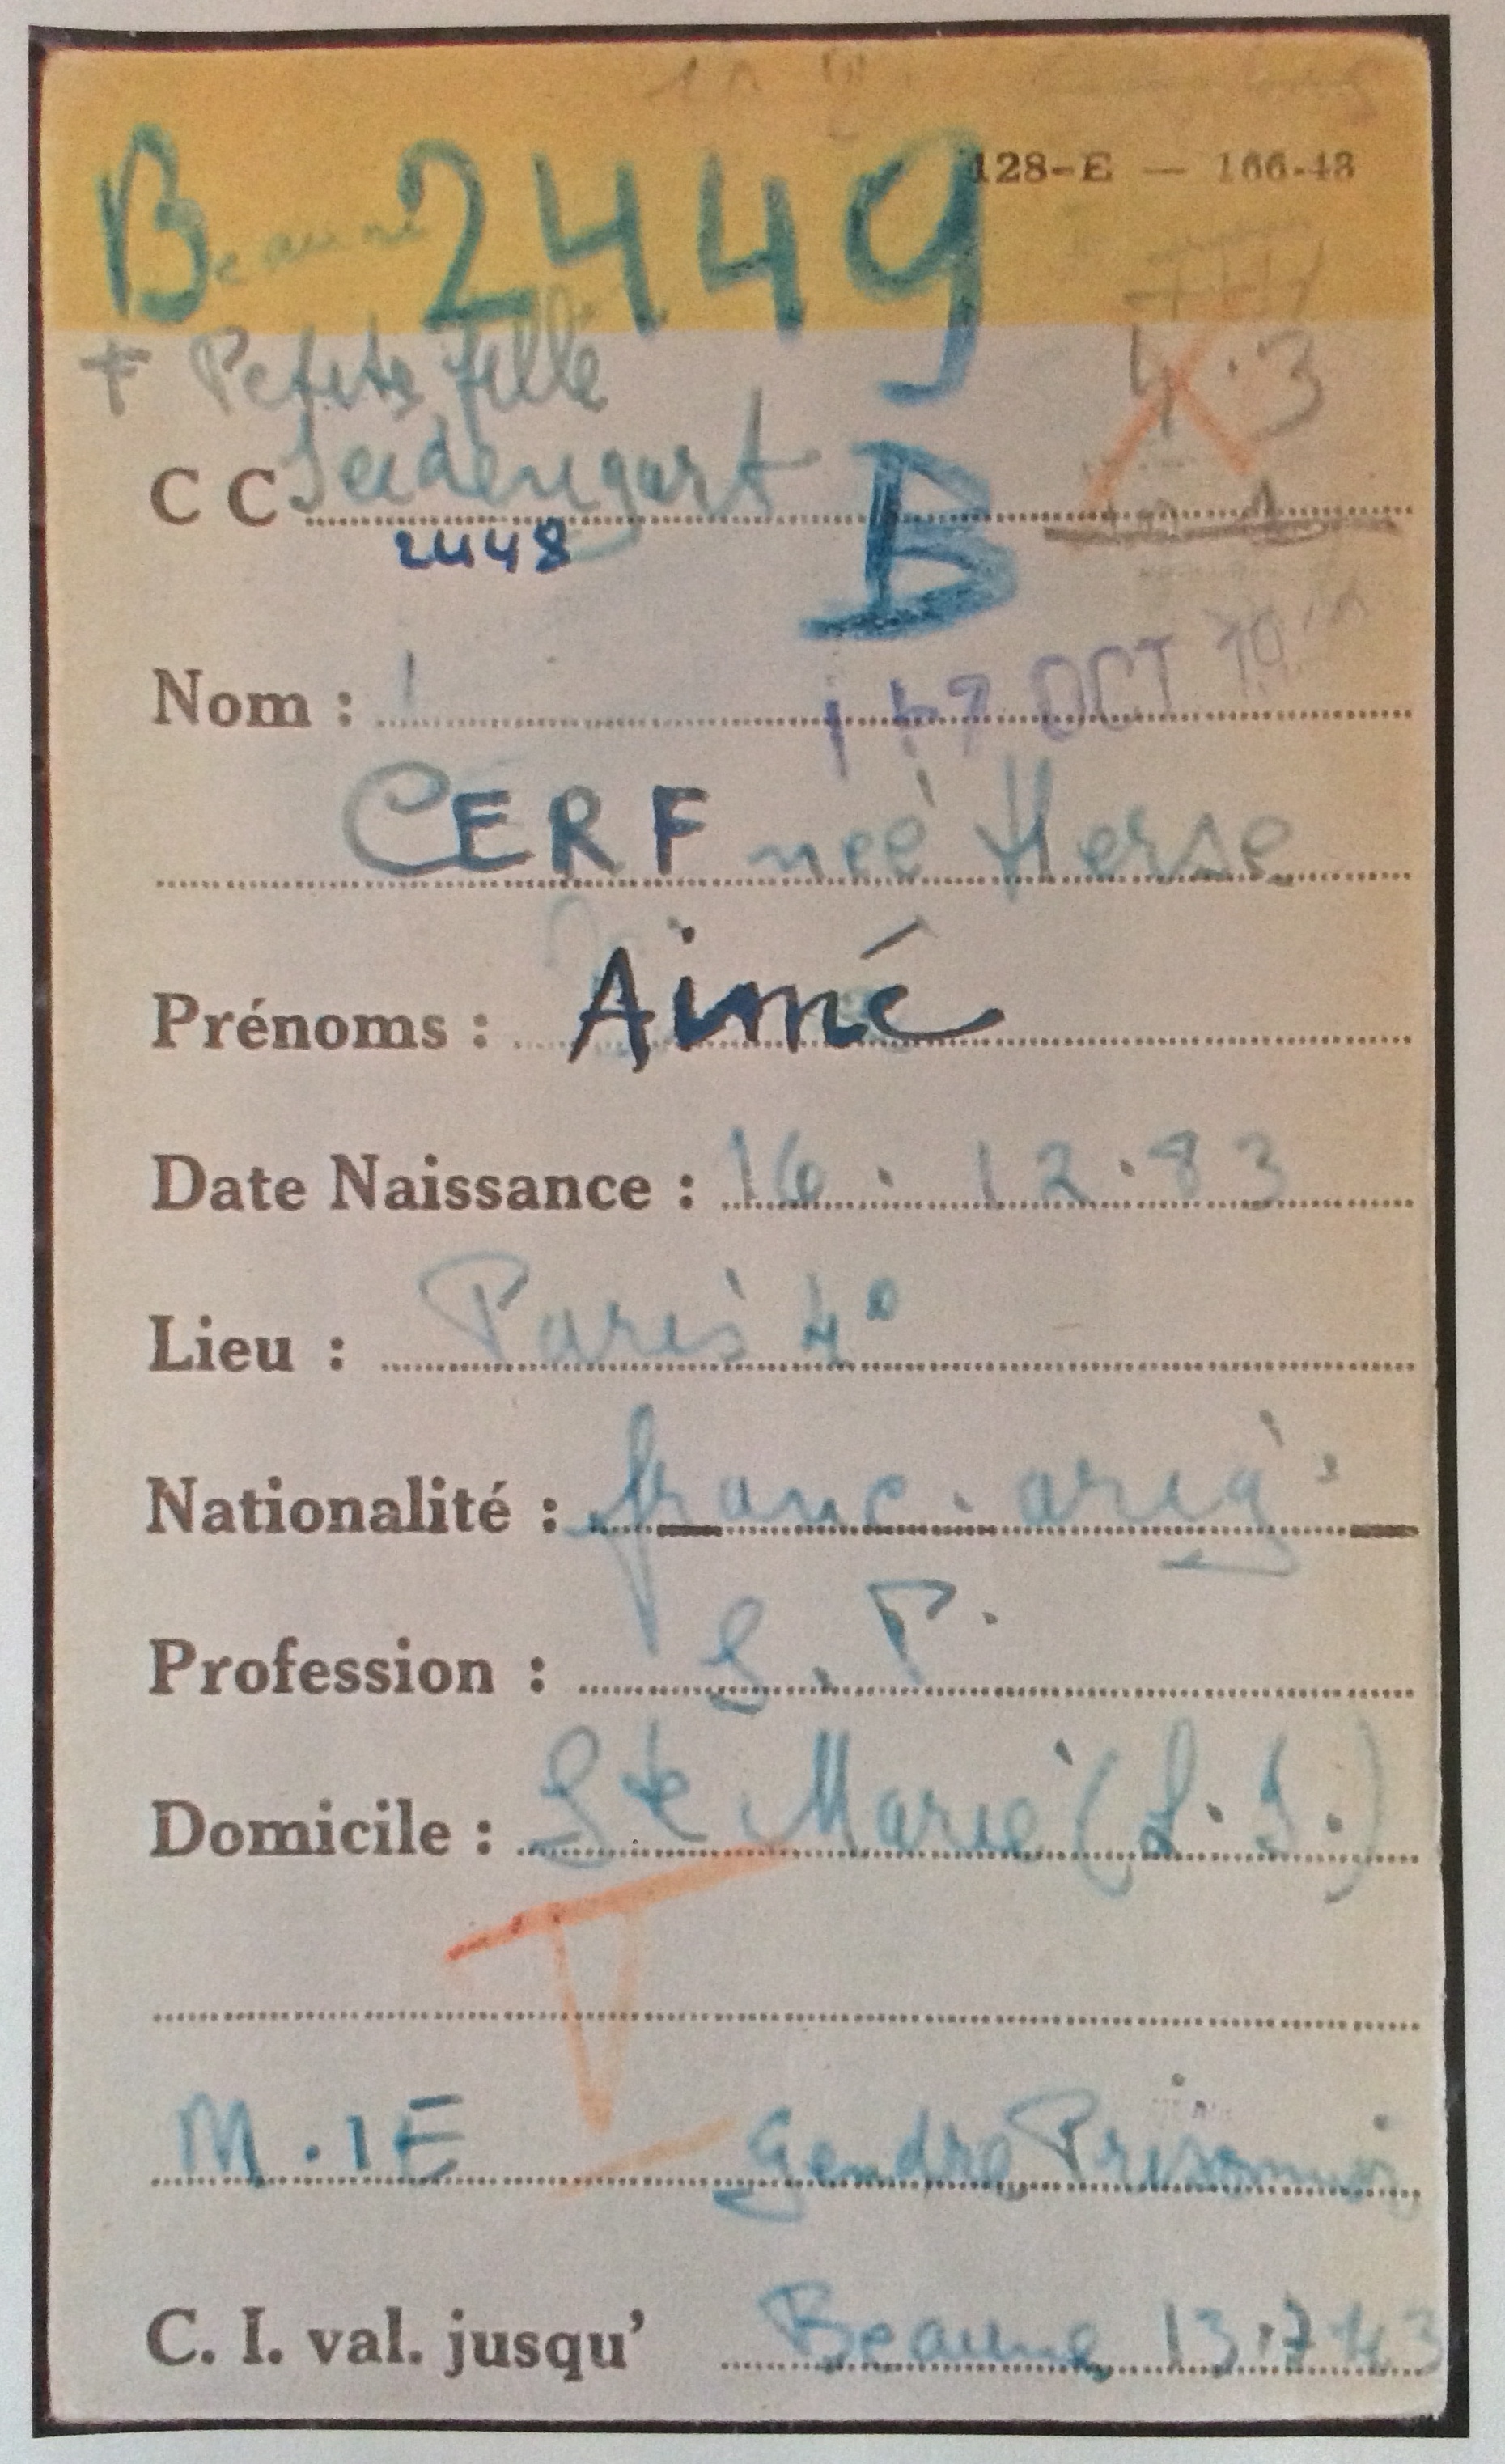 128-E — 166-43
B 2449
Beaune
+ Petite fille
4.3
CC Seidengart B
2448
Nom :
17 OCT
CERF née Herse
Prénoms : Aimé
Date Naissance : 16.12.83
Lieu : Paris 4e
Nationalité : franc. orig.
Profession : S.P.
Domicile : Ste Marie (L.I.)
M.1E Gendre Prisonnier
C. I. val. jusqu' Beaune 13.7.43